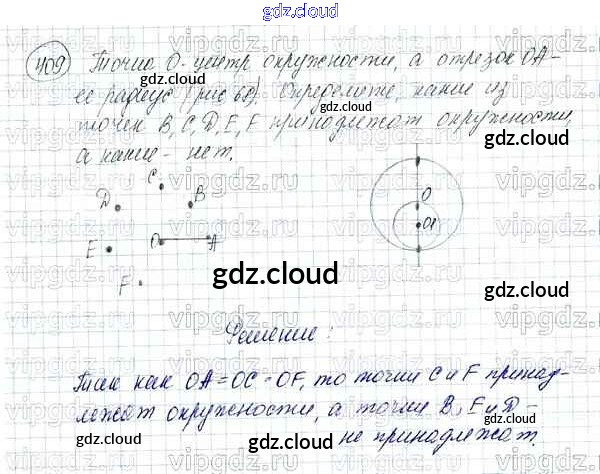 gdz.cloud
409 Точка О - центр окружности, а отрезок ОА -
её радиус (рис 68). Определите, какие из
точек В, С, D, E, F принадлежат окружности,
а какие - нет.
C
D B
O
O1
E O A
F
Решение:
Так как ОА = ОС = OF, то точки С и F принад-
лежат окружности, а точки В, Е и D -
не принадлежат.
gdz.cloud
gdz.cloud
gdz.cloud
gdz.cloud
gdz.cloud
gdz.cloud
gdz.cloud
vipgdz.ru